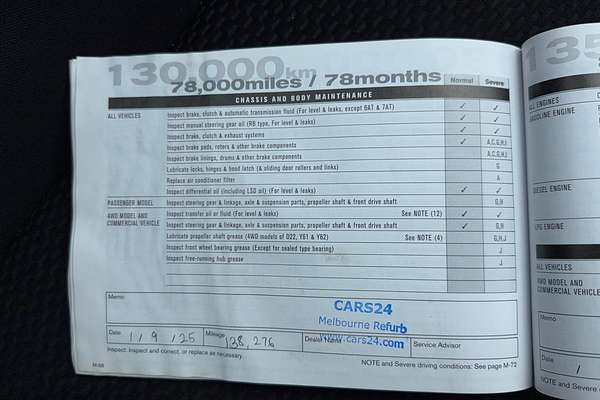 130,000km
78,000miles / 78months Normal Severe
CHASSIS AND BODY MAINTENANCE
ALL VEHICLES Inspect brake, clutch & automatic transmission fluid (For level & leaks, except 6AT & 7AT) ✓ ✓
Inspect manual steering gear oil (RB type, For level & leaks) ✓ ✓
Inspect brake, clutch & exhaust systems ✓ ✓
Inspect brake pads, rotors & other brake components ✓ A,C,G,H,I
Inspect brake linings, drums & other brake components A,C,G,H,I
Lubricate locks, hinges & hood latch (& sliding door rollers and links) G
Replace air conditioner filter A
Inspect differential oil (including LSD oil) (For level & leaks) ✓ ✓
PASSENGER MODEL Inspect steering gear & linkage, axle & suspension parts, propeller shaft & front drive shaft G,H
4WD MODEL AND COMMERCIAL VEHICLE Inspect transfer oil or fluid (For level & leaks) See NOTE (12) ✓ ✓
Inspect steering gear & linkage, axle & suspension parts, propeller shaft & front drive shaft ✓ G,H
Lubricate propeller shaft grease (4WD models of D22, Y61 & Y62) See NOTE (4) G,H,J
Inspect front wheel bearing grease (Except for sealed type bearing) J
Inspect free-running hub grease J
Memo
CARS24
Melbourne Refurb
www.cars24.com
Date 1 / 9 / 25 Mileage 138,276 Dealer Name Service Advisor
Inspect: Inspect and correct, or replace as necessary.
NOTE and Severe driving conditions: See page M-72
M-68
135
ALL ENGINES
GASOLINE ENGINE
DIESEL ENGINE
LPG ENGINE
ALL VEHICLES
4WD MODEL AND
COMMERCIAL VEHICLE
Memo
Date /